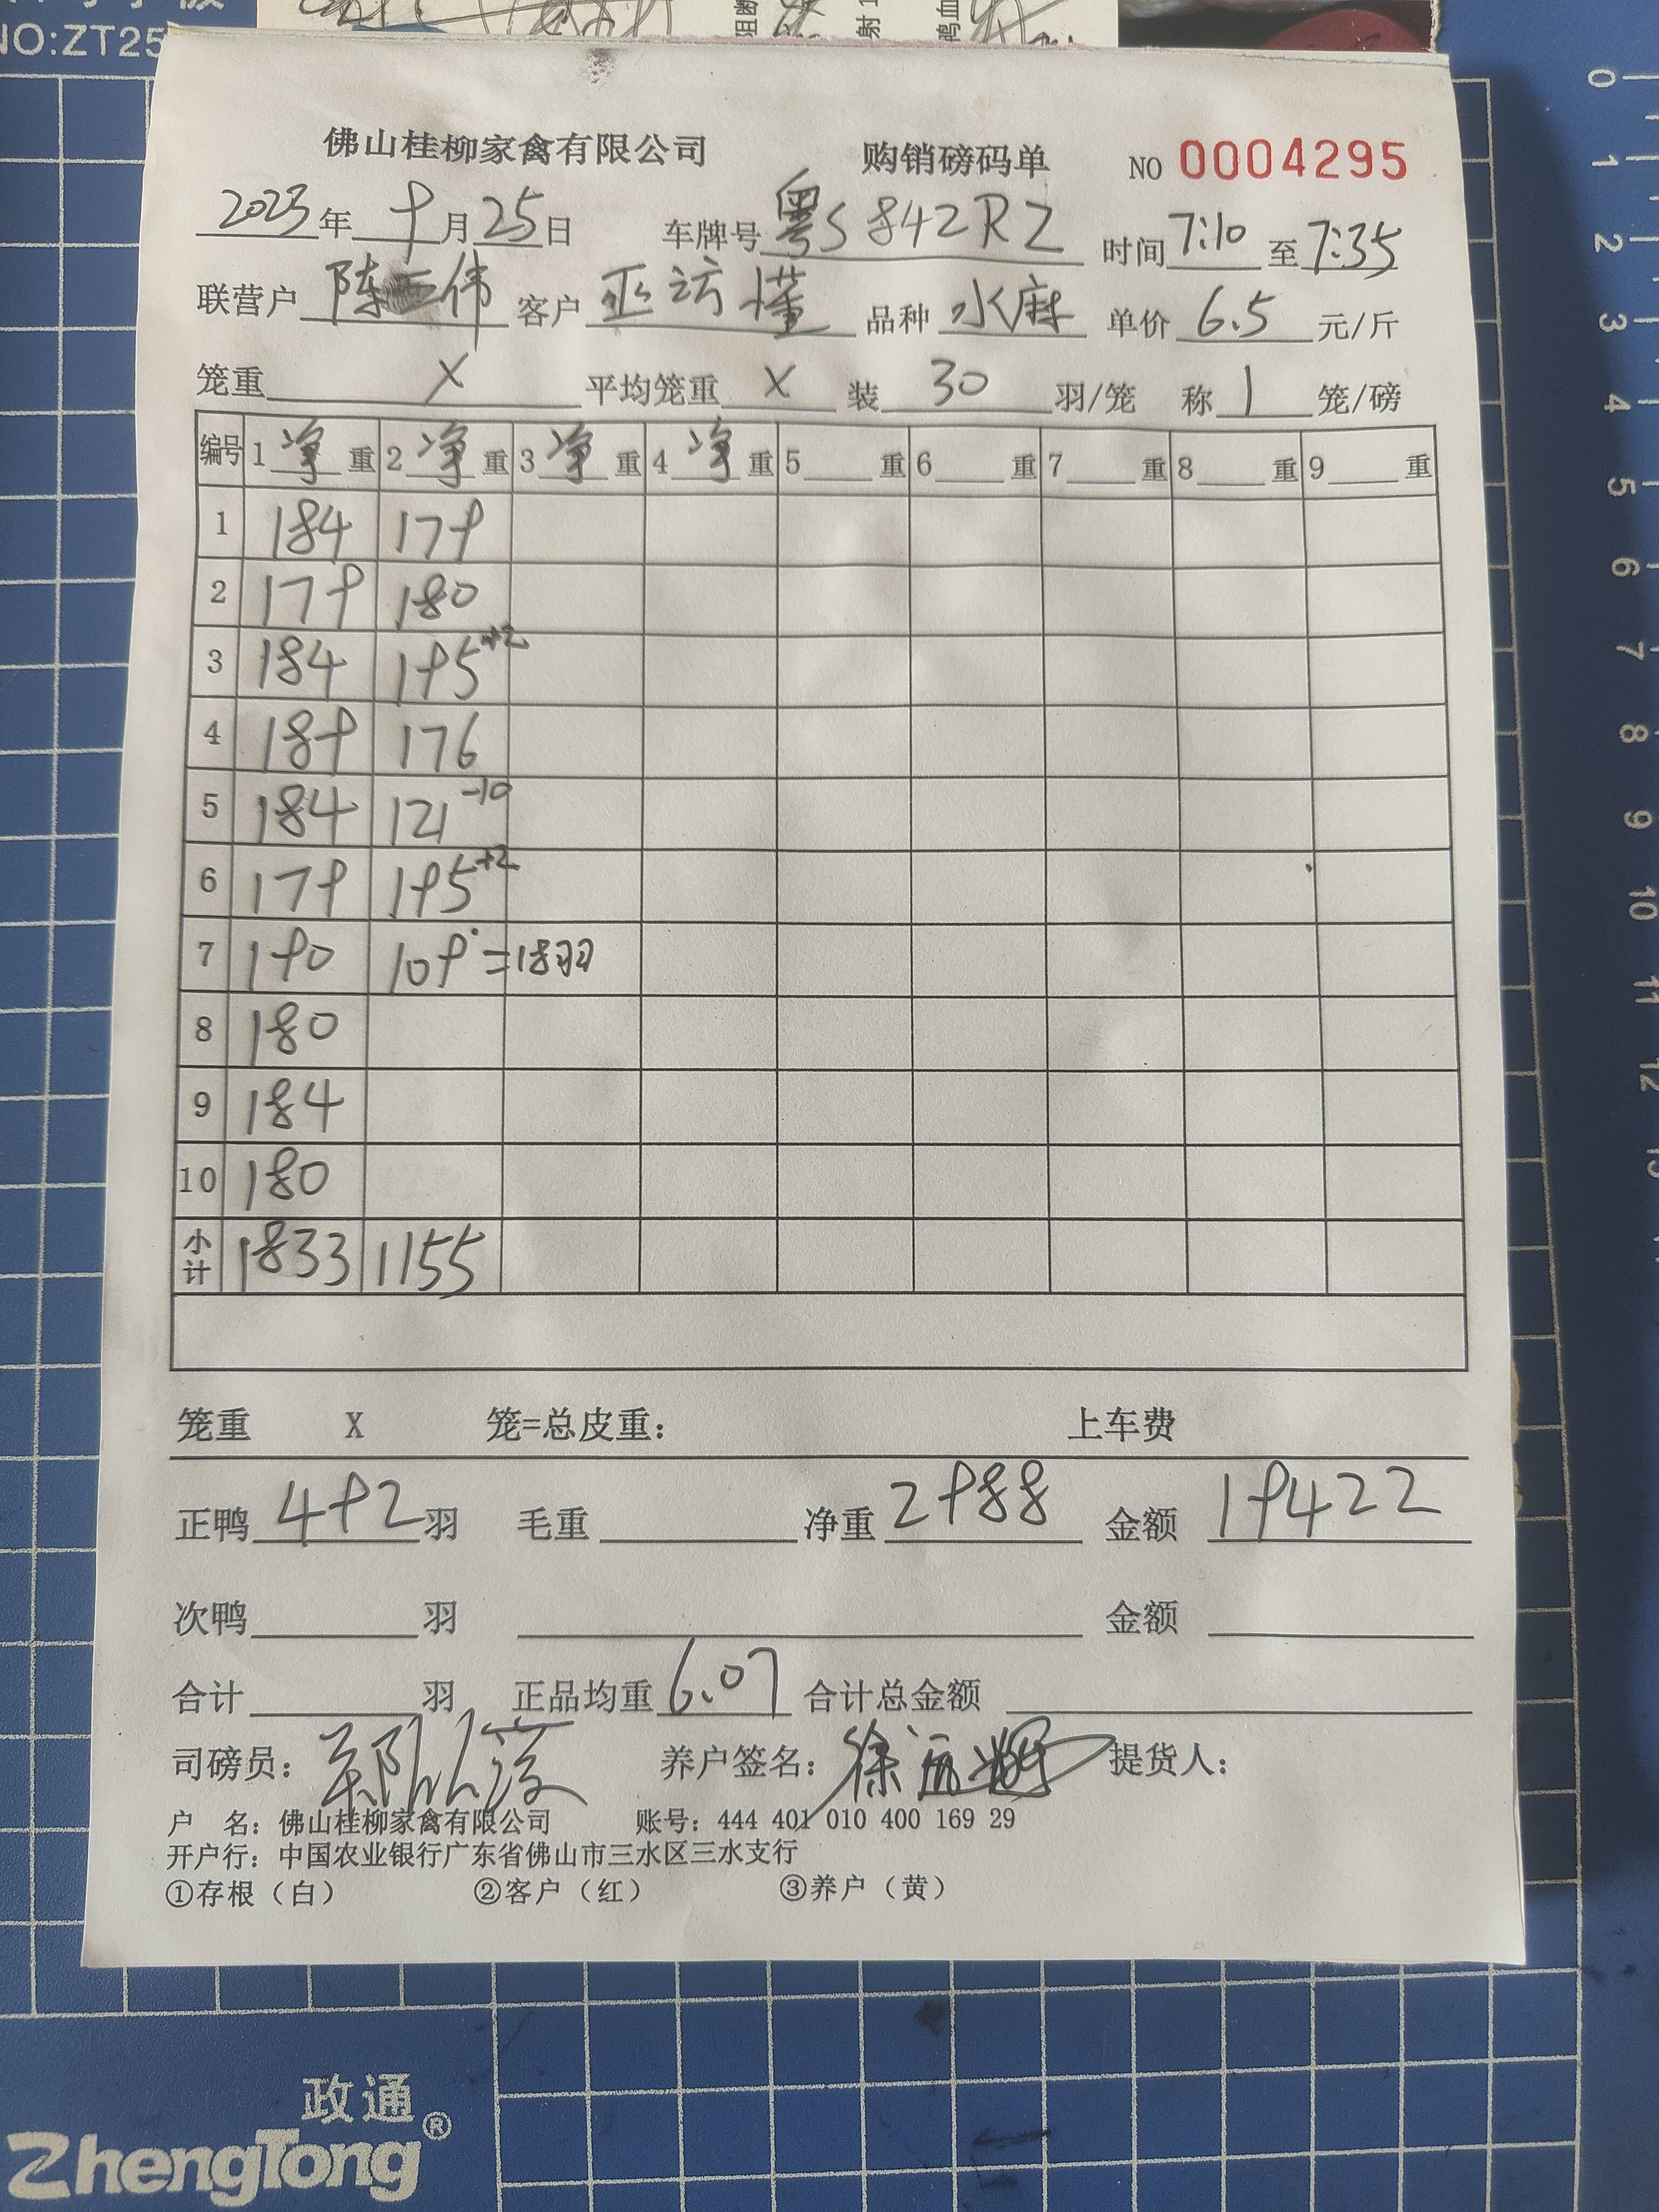 NO:ZT25
佛山桂柳家禽有限公司 购销磅码单 NO 0004295
2023年 9月25日 车牌号 粤S 842RZ 时间 7:10 至 7:35
联营户 陈 伟 客户 巫访懂 品种 水麻 单价 6.5 元/斤
笼重 X 平均笼重 X 装 30 羽/笼 称 1 笼/磅
编号 1 净 重 2 净 重 3 净 重 4 净 重 5 重 6 重 7 重 8 重 9 重
1 184 179
2 179 180
3 184 195+2
4 189 176
5 184 121-10
6 179 195+2
7 190 109=18羽
8 180
9 184
10 180
小计 1833 1155
笼重 X 笼=总皮重： 上车费
正鸭 492 羽 毛重 净重 2988 金额 19422
次鸭 羽 金额
合计 羽 正品均重 6.07 合计总金额
司磅员： 养户签名： 提货人：
户 名：佛山桂柳家禽有限公司 账号：444 401 010 400 169 29
开户行：中国农业银行广东省佛山市三水区三水支行
①存根（白） ②客户（红） ③养户（黄）
政通®
ZhengTong
0
1
2
3
4
5
6
7
8
9
10
11
12
13